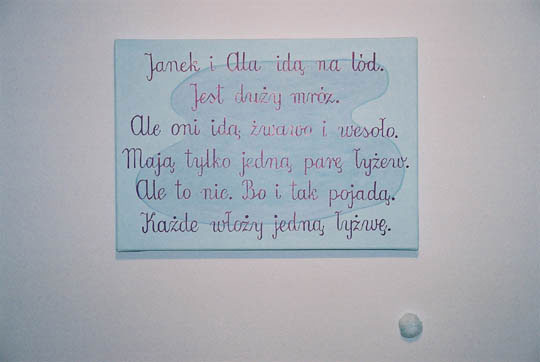 Janek i Ala idą na lód.
Jest duży mróz.
Ale oni idą żwawo i wesoło.
Mają tylko jedną parę łyżew.
Ale to nic. Bo i tak pojadą.
Każde włoży jedną łyżwę.